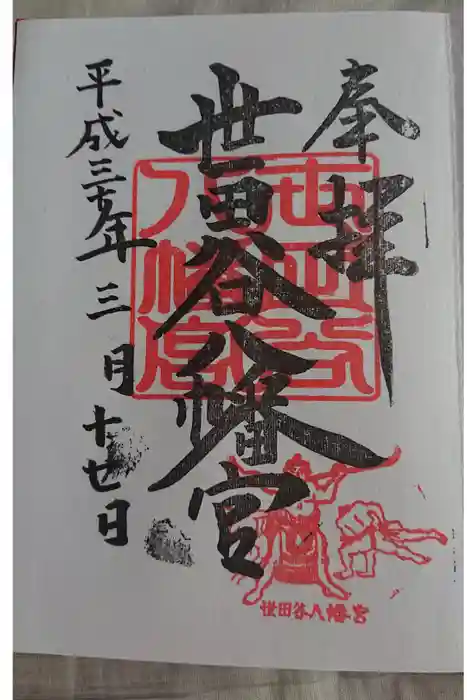 奉拝
世田谷
八幡宮
世田谷八幡宮
平成三十一年三月十七日
世田谷八幡宮